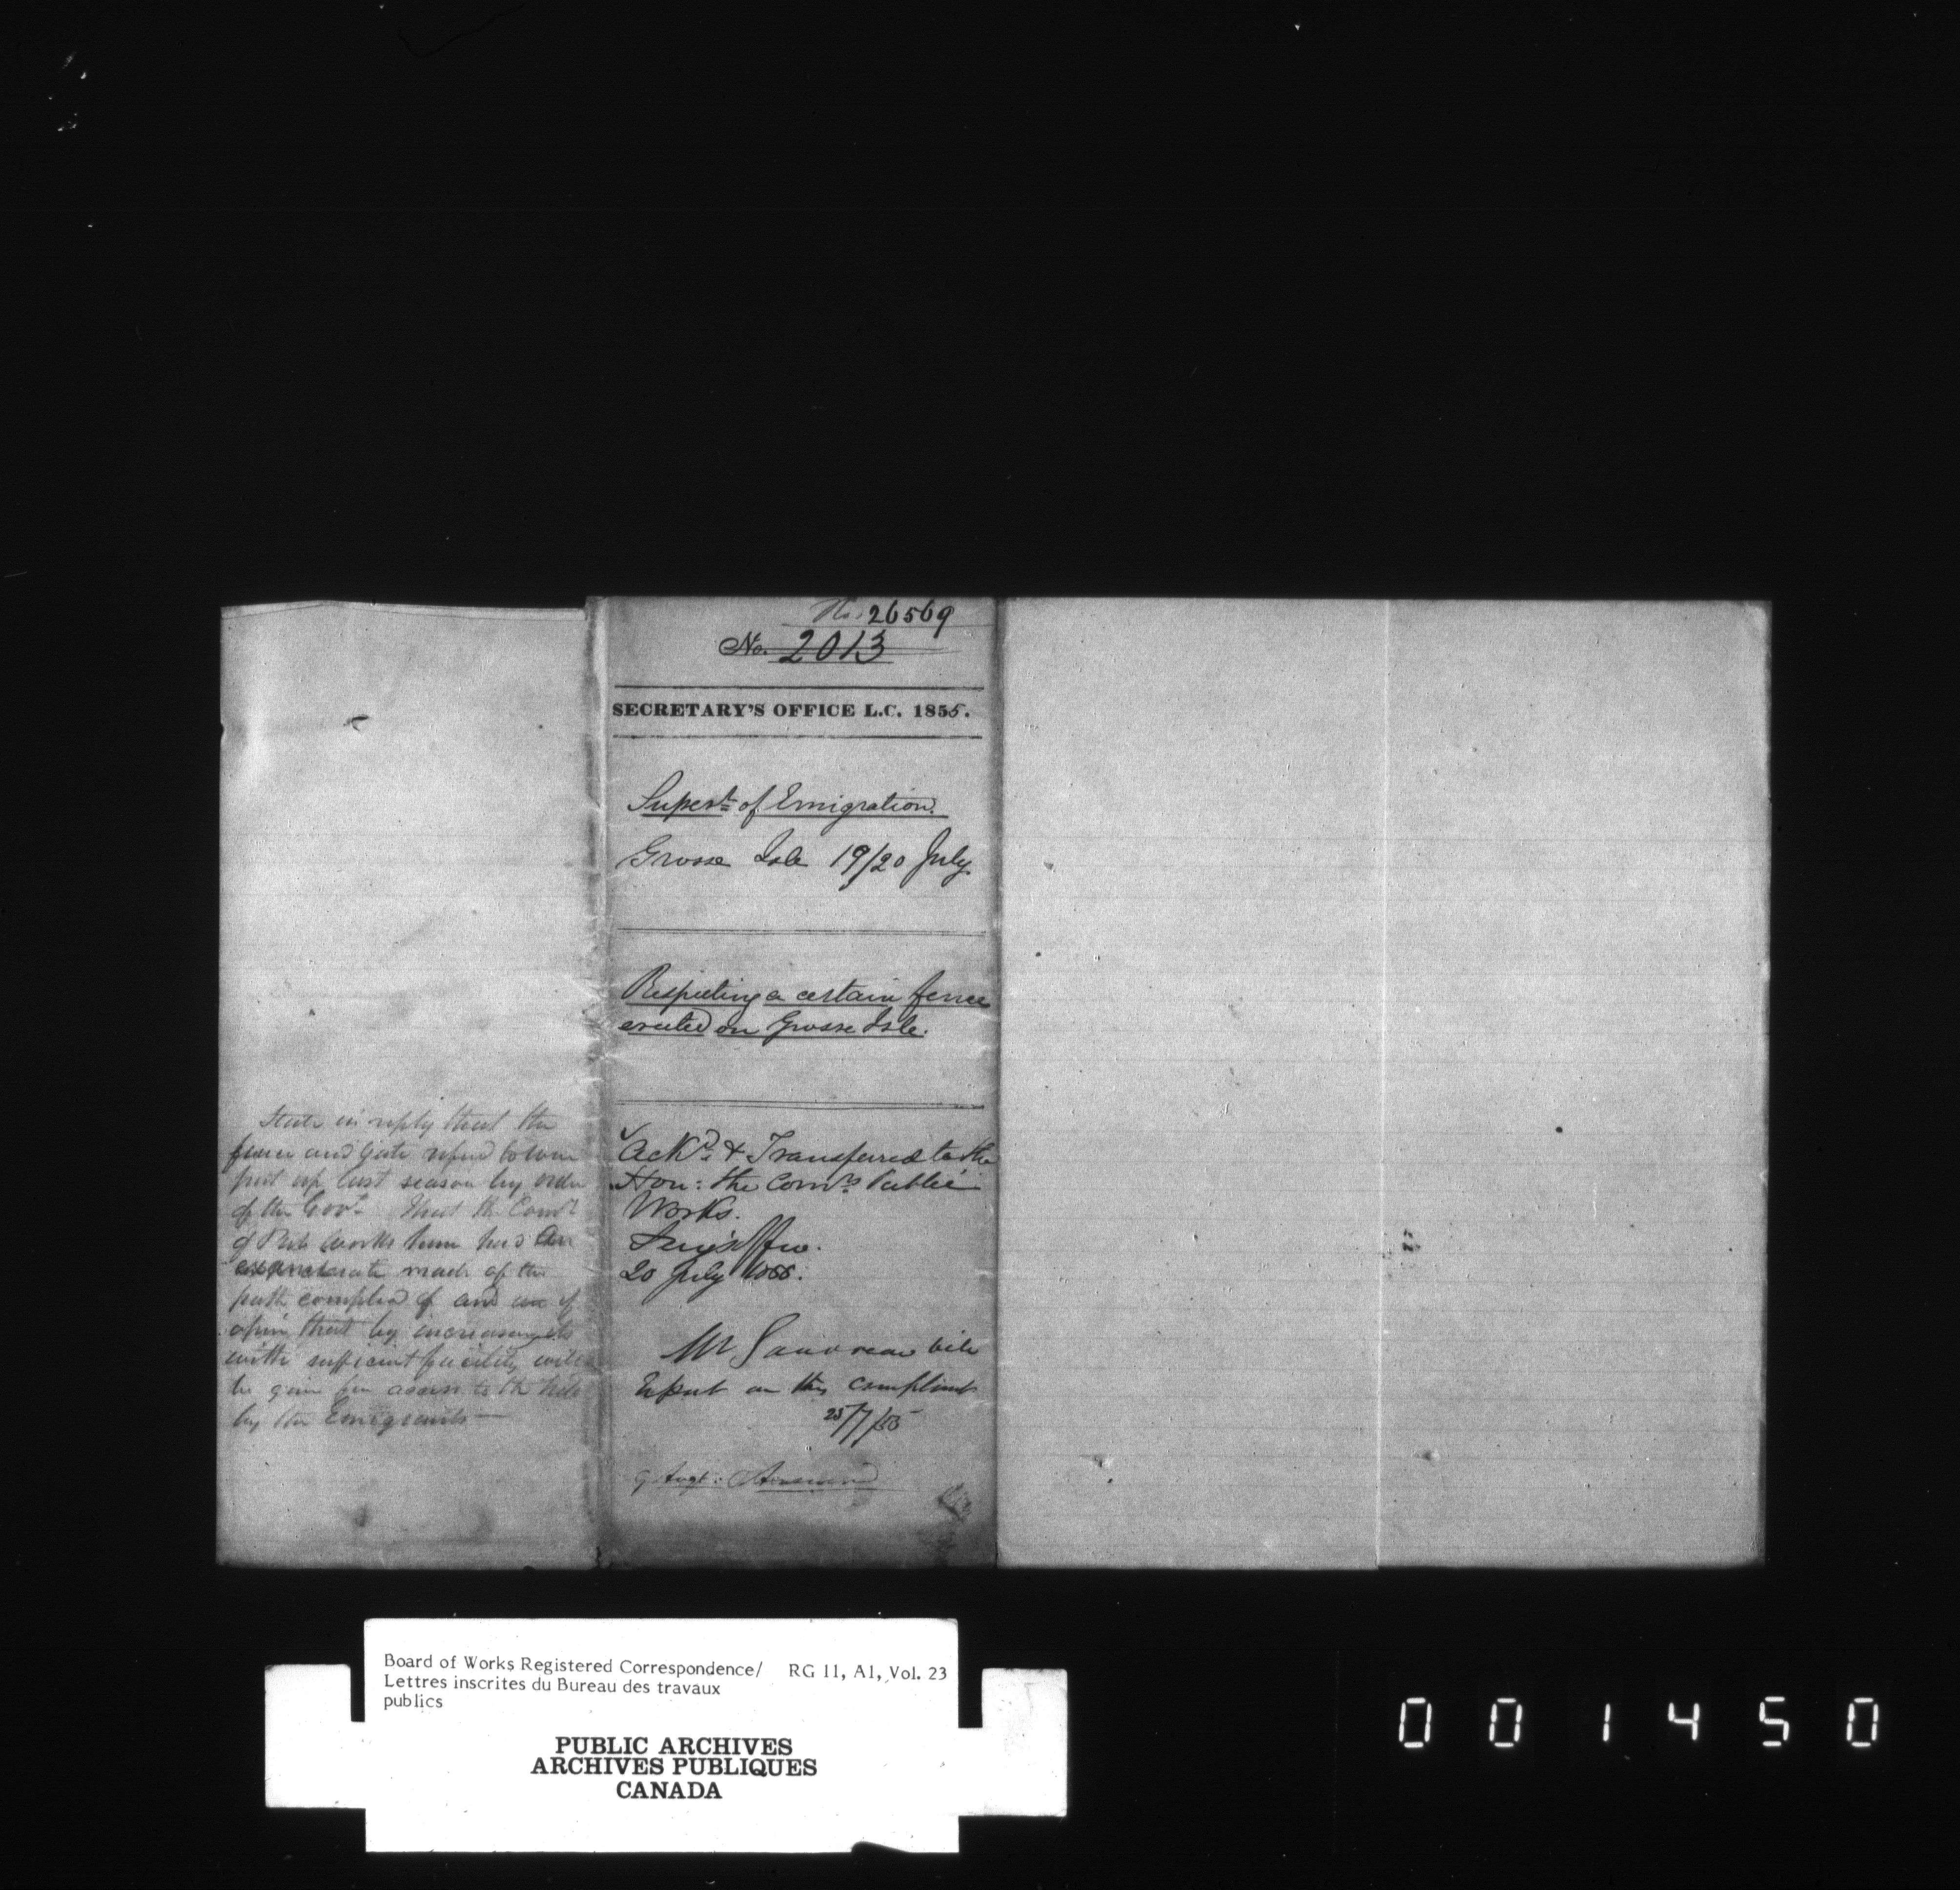 State in reply that the
fence and gate refer'd to were
put up last season by order
of the Gov.t That the Com.rs
of Pub Works have had an
made of the
path complnd of and are of
opin that by increasing its
width sufficient facility will
be given for access to the hill
by the Emigrants —
No. 26569
No. 2013
SECRETARY'S OFFICE L.C. 1855.
Supert. of Emigration.
Grosse Isle 19/20 July
Respecting a certain fence
erected on Grosse Isle.
Ack'd. & Transferred to the
Hon: the Com.rs Public
Works.
20 July 1855.
Mr Gauvreau will
report on this complaint
25/7/55
9 Augt: Answered
Board of Works Registered Correspondence/ RG 11, A1, Vol. 23
Lettres inscrites du Bureau des travaux
publics
PUBLIC ARCHIVES
ARCHIVES PUBLIQUES
CANADA
001450